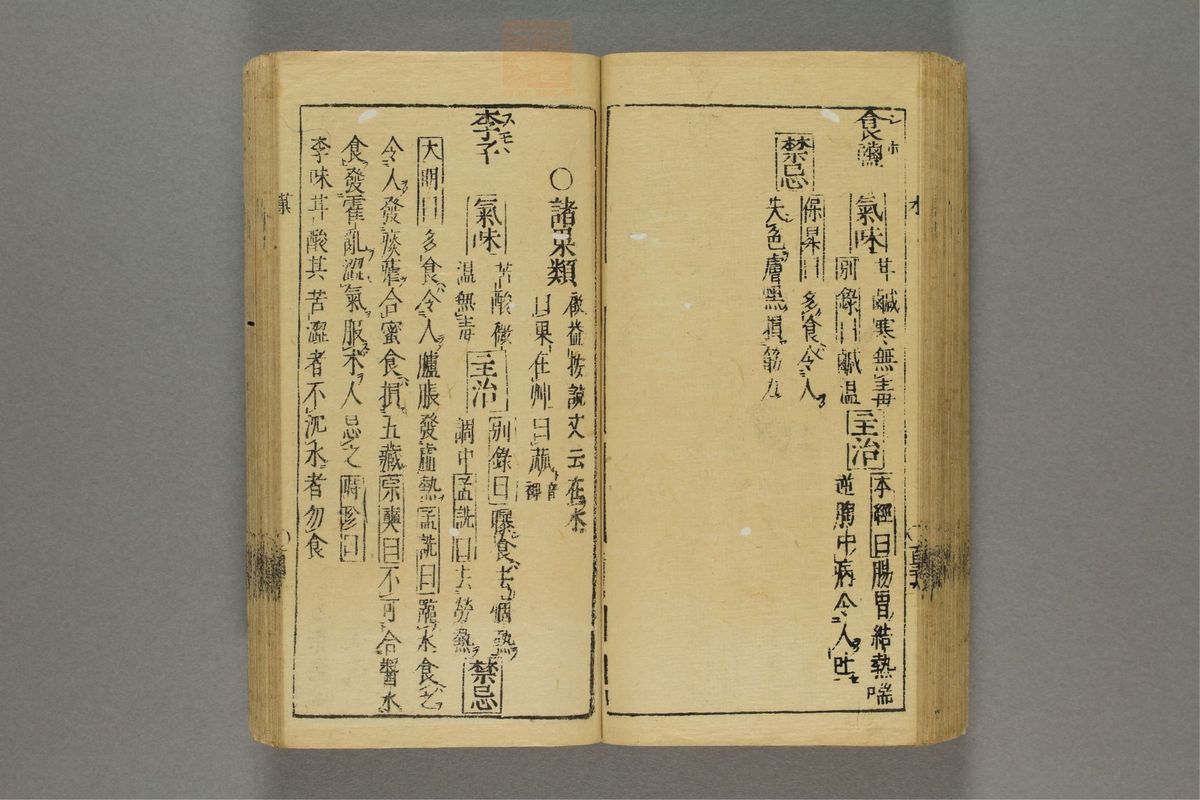 食鹽 シホ
氣味 甘鹹寒無毒
別錄曰鹹温
主治 本經曰腸胃結熱喘
逆胸中病令人吐
禁忌
保昇曰多食令人
失色膚黑損筋力
水
○諸果類
按説文云在木
曰果在艸曰蓏 音裸
李子 スモヽ
氣味 苦酸微
温無毒
主治 別錄曰曝食去痼熱
調中孟詵曰去勞熱
禁忌
大明曰多食令人臚脹發虛熱孟詵曰臨水食之
令人發痰瘧合蜜食損五藏宗奭曰不可合醬水
食發霍亂澀氣服朮人忌之時珍曰
李味甘酸其苦澀者不沉水者勿食
菓